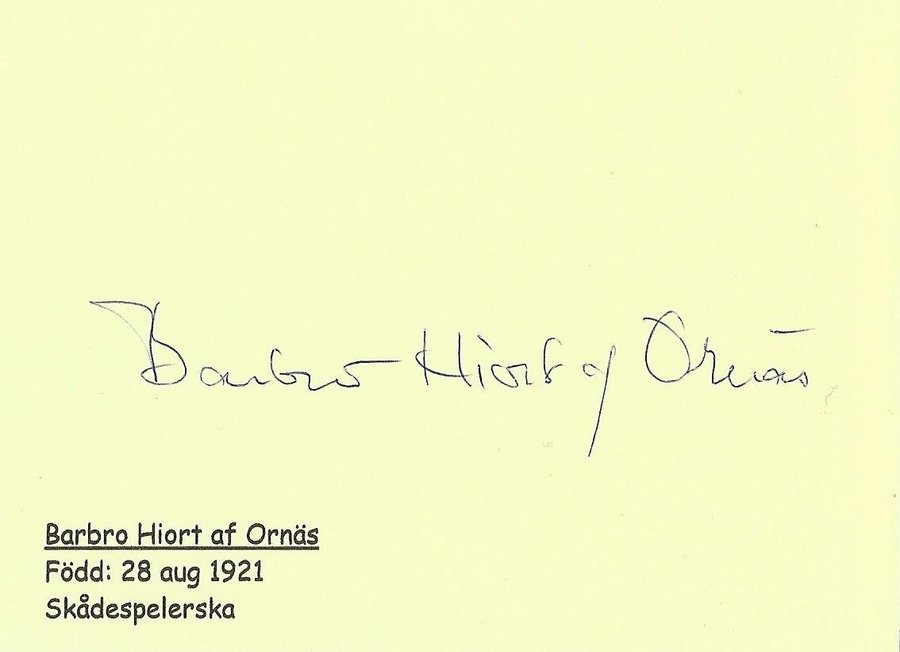 Barbro Hiort af Ornäs
Barbro Hiort af Ornäs
Född: 28 aug 1921
Skådespelerska